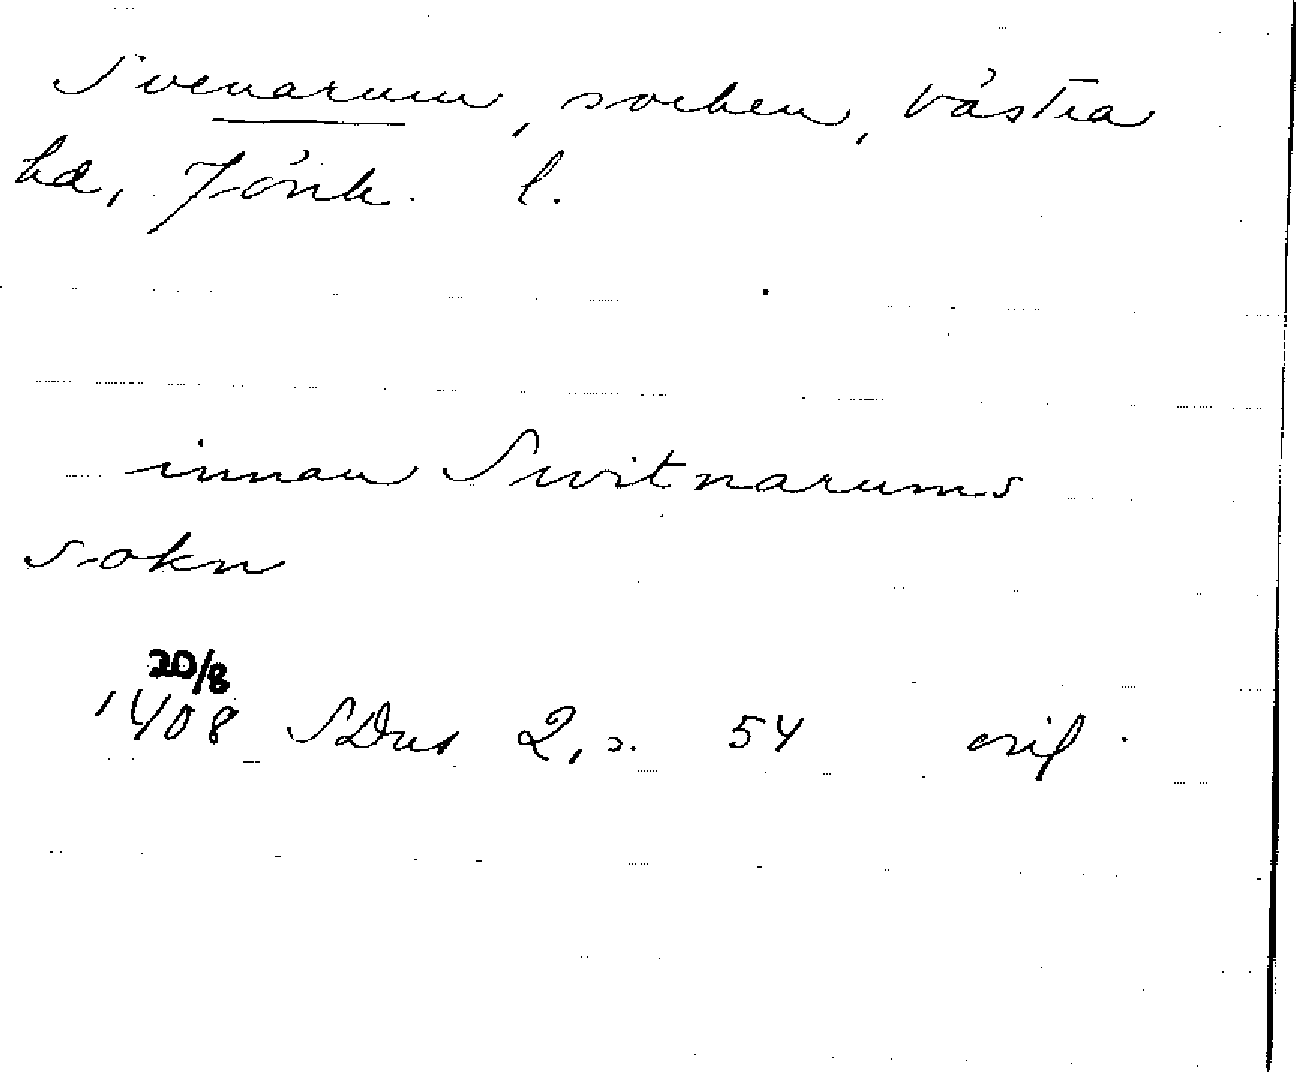 Svenarum, socken, Västra
hd, Jönk. l.
innan Switnarums
sokn
20/8
1408 SDns 2, s. 54 oril.